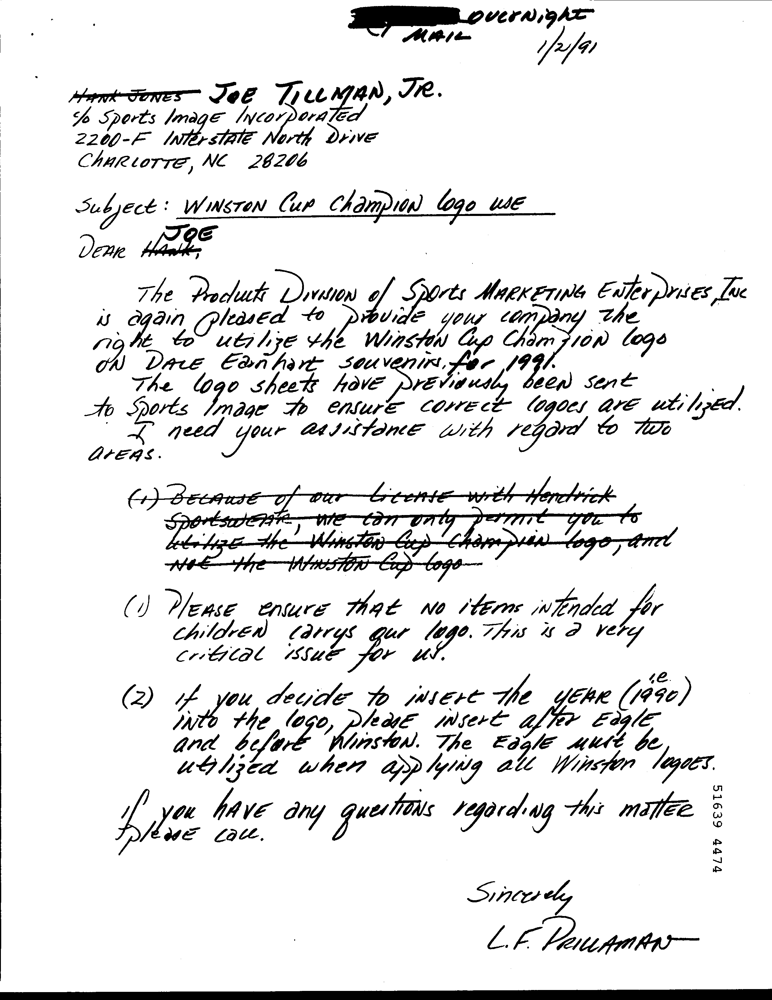 Overnight
MAIL
1/2/91
Hank Jones JOE TILLMAN, JR.
c/o Sports Image Incorporated
2200-F Interstate North Drive
Charlotte, NC 28206
Subject: Winston Cup Champion logo use
JOE
Dear Hank,
The Products Division of Sports Marketing Enterprises, Inc
is again pleased to provide your company the
right to utilize the Winston Cup Champion logo
on Dale Earnhart souvenirs, for 1991.
The logo sheets have previously been sent
to Sports Image to ensure correct logoes are utilized.
I need your assistance with regard to two
areas.
(1) Because of our license with Hendrick
Sportswear, we can only permit you to
utilize the Winston Cup Champion logo, and
not the Winston Cup logo
(1) Please ensure that no items intended for
children carrys our logo. This is a very
critical issue for us.
(2) if you decide to insert the year (i.e. 1990)
into the logo, please insert after Eagle
and before Winston. The Eagle must be
utilized when applying all Winston logoes.
if you have any questions regarding this matter
please call.
Sincerely
L.F. Prillaman
51639 4474